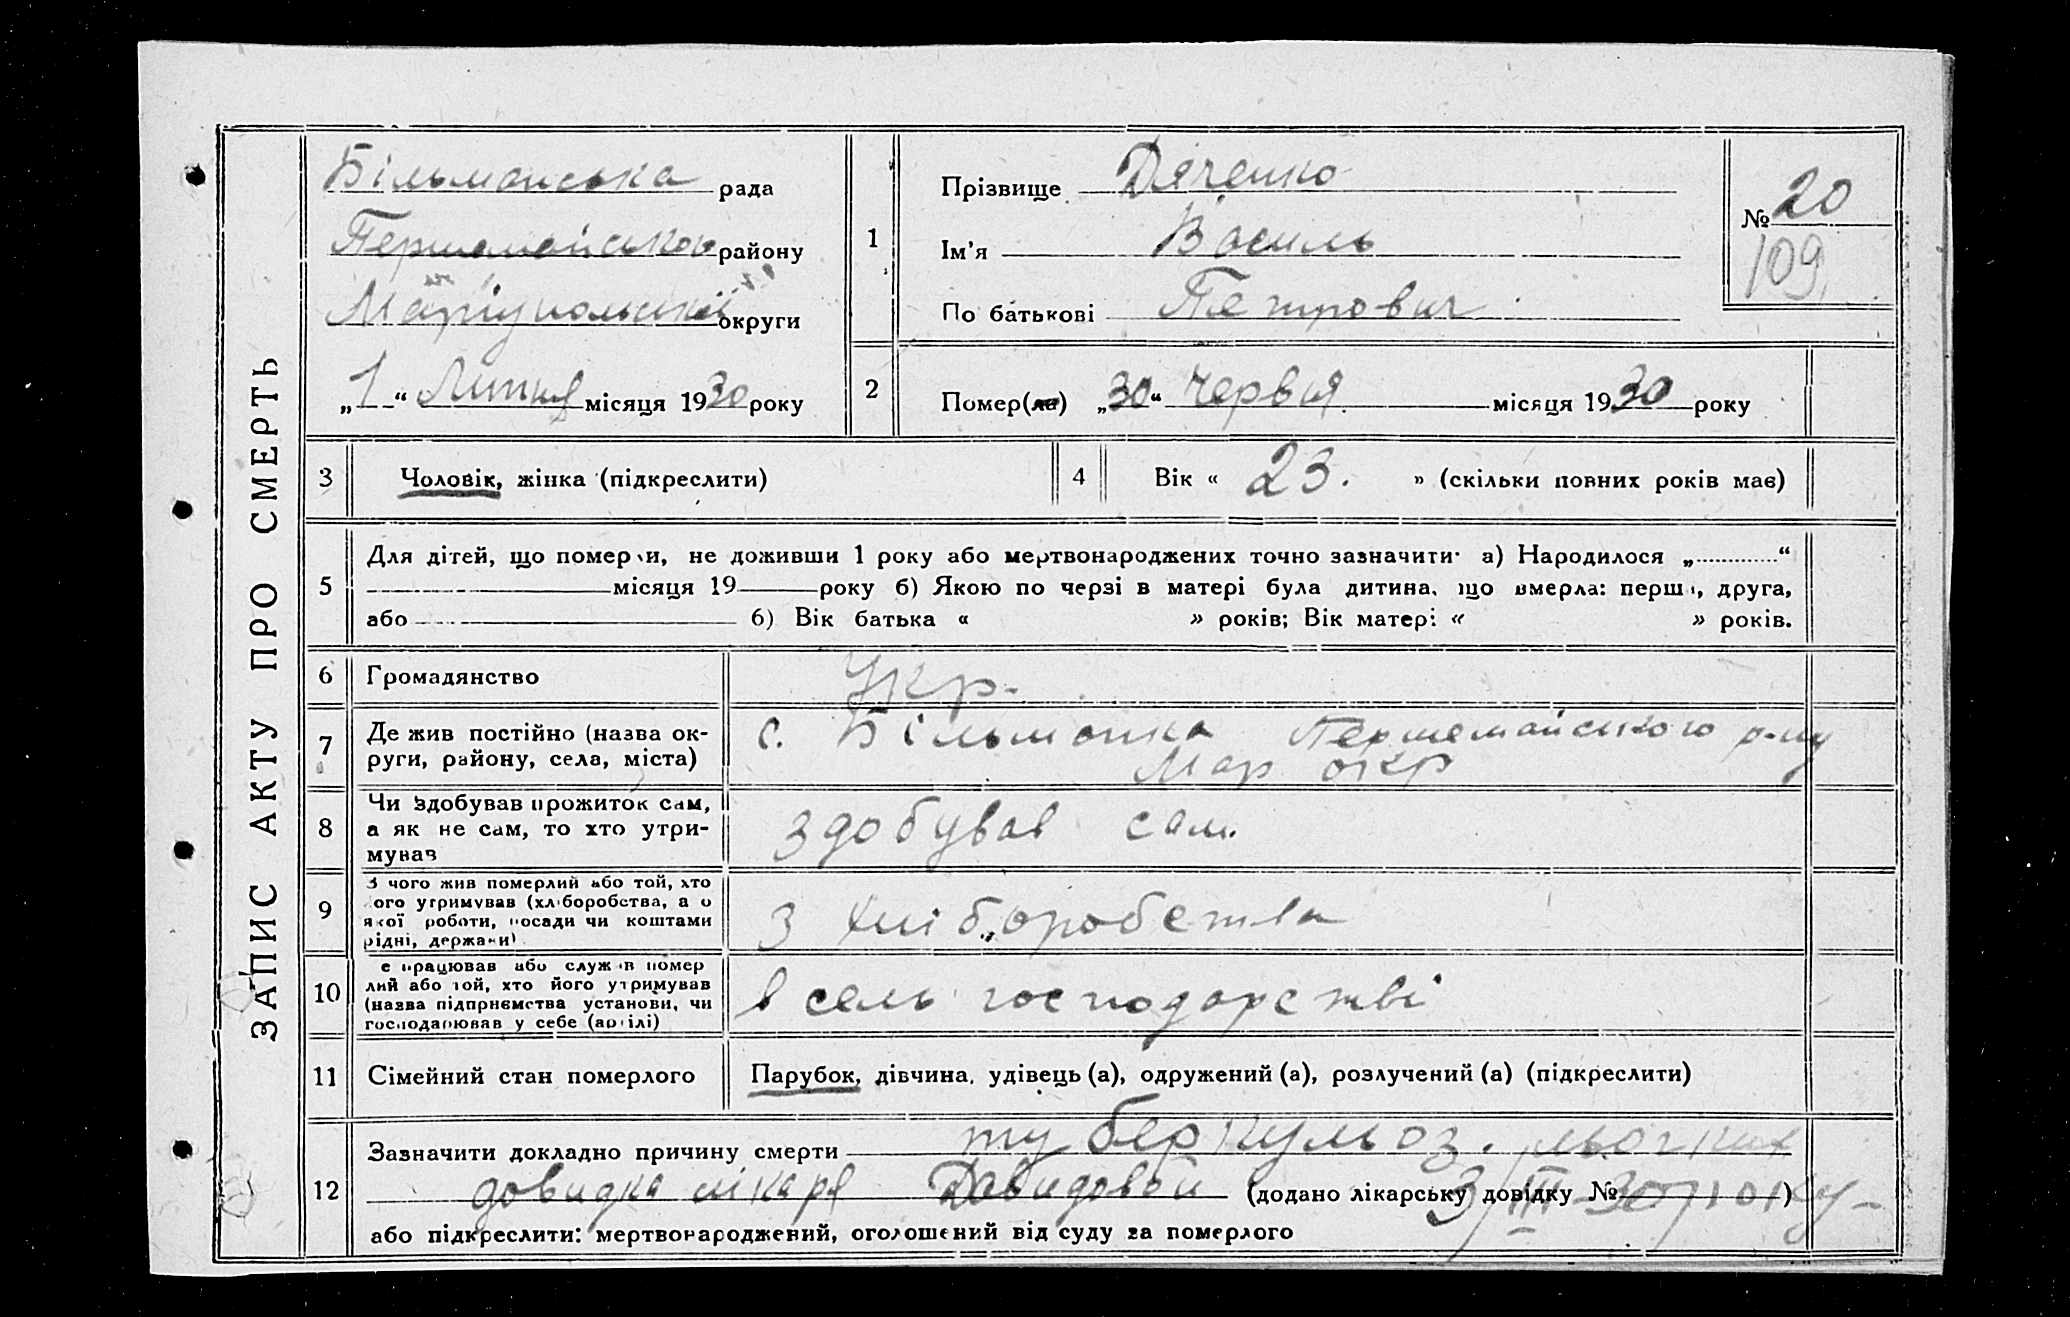 ЗАПИС АКТУ ПРО СМЕРТЬ
Більманська рада
Першомайського району
Маріупольської округи
„1“ Липня місяця 1930 року
1
Прізвище Дяченко
Ім'я Василь
По батькові Петрович
№ 20
109
2
Помер(ла) „30“ Червня місяця 1930 року
3
Чоловік, жінка (підкреслити)
4
Вік « 23. » (скільки повних років має)
5
Для дітей, що померли, не доживши 1 року або мертвонароджених точно зазначити· а) Народилося „ “
місяця 19 року б) Якою по черзі в матері була дитина, що вмерла: перша, друга,
або б) Вік батька « » років; Вік матері: « » років.
6
Громадянство
Укр.
7
Де жив постійно (назва ок-
руги, району, села, міста)
с. Більманка Першемайського р-ну
Мар окр
8
Чи здобував прожиток сам,
а як не сам, то хто утри-
мував
здобував сам.
9
З чого жив померлий або той, хто
його утримував (хліборобства, а о
якої роботи, посади чи коштами
рідні, держави)
З хліборобства
10
е працював або служив помер
лий або той, хто його утримував
(назва підприємства установи, чи
господарював у себе (артілі)
в сель господарстві
11
Сімейний стан померлого
Парубок, дівчина, удівець (а), одружений (а), розлучений (а) (підкреслити)
12
Зазначити докладно причину смерти туберкульоз. льогких
довидка лікаря Давидовой (додано лікарську довідку № ) 3/III-30 року-
або підкреслити: мертвонароджений, оголошений від суду за померлого